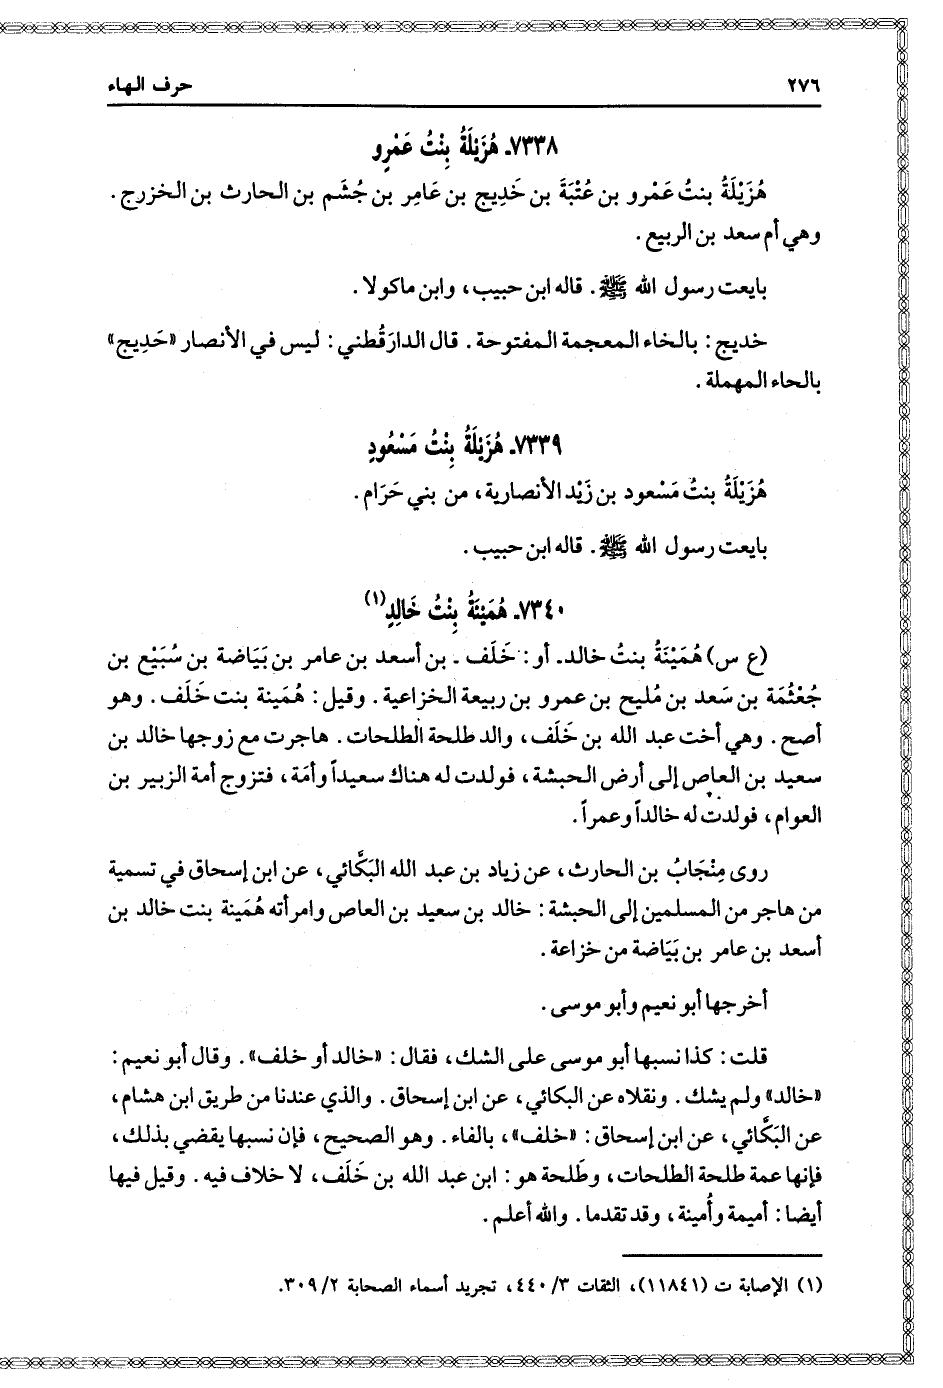 ٢٧٦ حرف الهاء
٧٣٣٨ـ هُزَيْلَةُ بِنْتُ عَمْرٍو
هُزَيْلَةُ بنتُ عَمْرو بن عُتْبَةَ بن خَدِيج بن عَامِر بن جُشَم بن الحارث بن الخزرج.
وهي أم سعد بن الربيع.
بايعت رسول الله ﷺ. قاله ابن حبيب، وابن ماكولا.
خديج: بالخاء المعجمة المفتوحة. قال الدارَقُطني: ليس في الأنصار «حَدِيج»
بالحاء المهملة.
٧٣٣٩ـ هُزَيْلَةُ بِنْتُ مَسْعُودٍ
هُزَيْلَةُ بنتُ مَسْعود بن زَيْد الأنصارية، من بني حَرَام.
بايعت رسول الله ﷺ. قاله ابن حبيب.
٧٣٤٠ـ هُمَيْنَةُ بِنْتُ خَالِدٍ(١)
(ع س) هُمَيْنَةُ بنتُ خالد. أو: خَلَف ـ بن أسعد بن عامر بن بَيَاضة بن سُبَيْع بن
جُعْثُمَة بن سَعد بن مُليح بن عمرو بن ربيعة الخزاعية. وقيل: هُمَينة بنت خَلَف. وهو
أصح. وهي أخت عبد الله بن خَلَف، والد طلحة الطلحات. هاجرت مع زوجها خالد بن
سعيد بن العاص إلى أرض الحبشة، فولدت له هناك سعيداً وأمَة، فتزوج أمة الزبير بن
العوام، فولدت له خالداً وعمراً.
روى مِنْجَابُ بن الحارث، عن زياد بن عبد الله البَكَّائي، عن ابن إسحاق في تسمية
من هاجر من المسلمين إلى الحبشة: خالد بن سعيد بن العاص وامرأته هُمَينة بنت خالد بن
أسعد بن عامر بن بَيَاضة من خزاعة.
أخرجها أبو نعيم وأبو موسى.
قلت: كذا نسبها أبو موسى على الشك، فقال: «خالد أو خلف». وقال أبو نعيم:
«خالد» ولم يشك. ونقلاه عن البكائي، عن ابن إسحاق. والذي عندنا من طريق ابن هشام،
عن البَكَّائي، عن ابن إسحاق: «خلف»، بالفاء. وهو الصحيح، فإن نسبها يقضي بذلك،
فإنها عمة طلحة الطلحات، وطَلحة هو: ابن عبد الله بن خَلَف، لا خلاف فيه. وقيل فيها
أيضا: أميمة وأُمينة، وقد تقدما. والله أعلم.
(١) الإصابة ت (١١٨٤١)، الثقات ٣/ ٤٤٠، تجريد أسماء الصحابة ٢/ ٣٠٩.